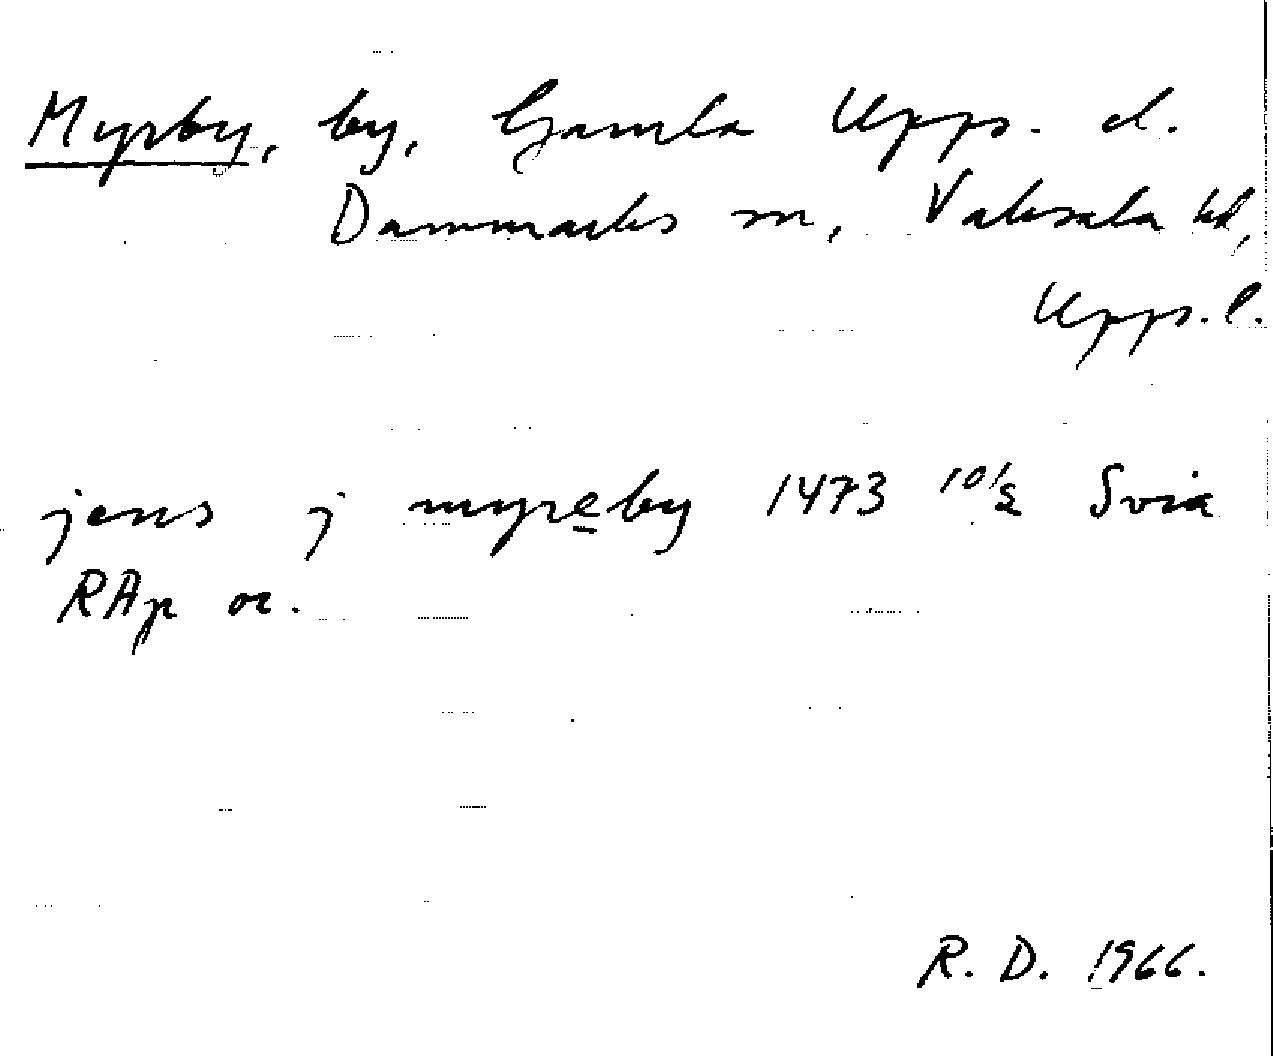 Myrby, by, Gamla Upps. el.
Danmarks sn, Vaksala hd,
Upps. l.
jens j myreby 1473 10/2 Svia
RAp or.
R. D. 1966.